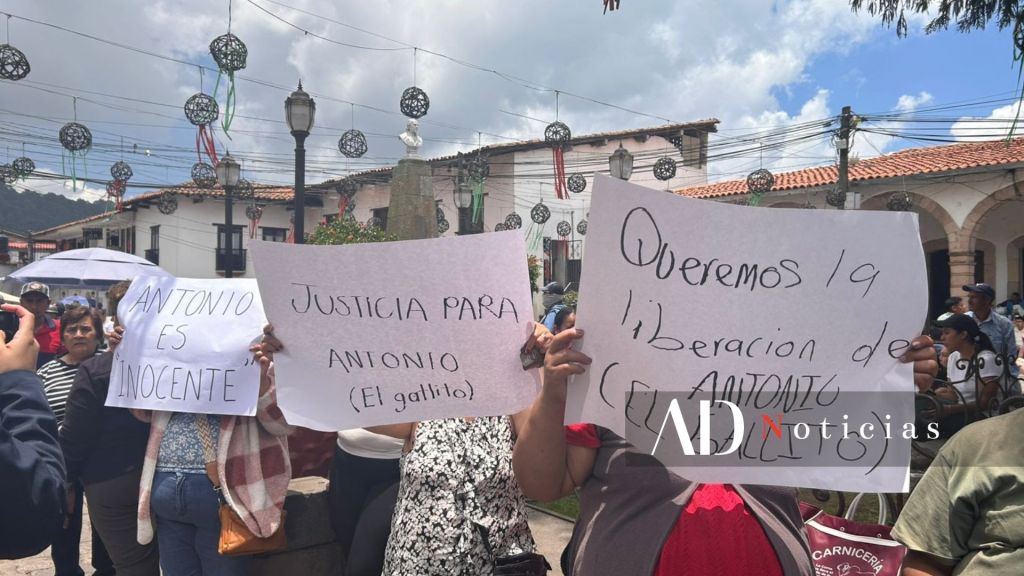 ANTONIO
ES
"INOCENTE"
JUSTICIA PARA
ANTONIO
(El gallito)
Queremos la
liberación de
ANTONIO
(EL GALLITO)
AD Noticias
CARNICERIA